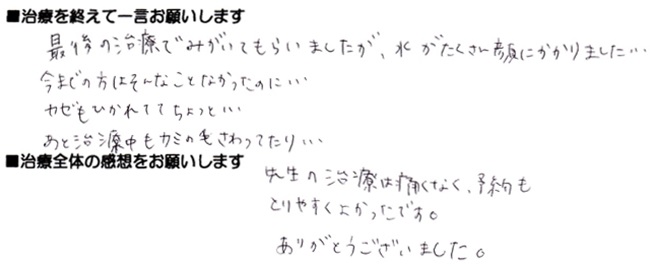 ■治療を終えて一言お願いします
最後の治療でみがいてもらいましたが、水がたくさん顔にかかりました…
今までの方はそんなことなかったのに…
カゼもひかれててちょっと…
あと治療中もカミの毛さわってたり…
■治療全体の感想をお願いします
先生の治療は痛くなく、予約も
とりやすくよかったです。
ありがとうございました。